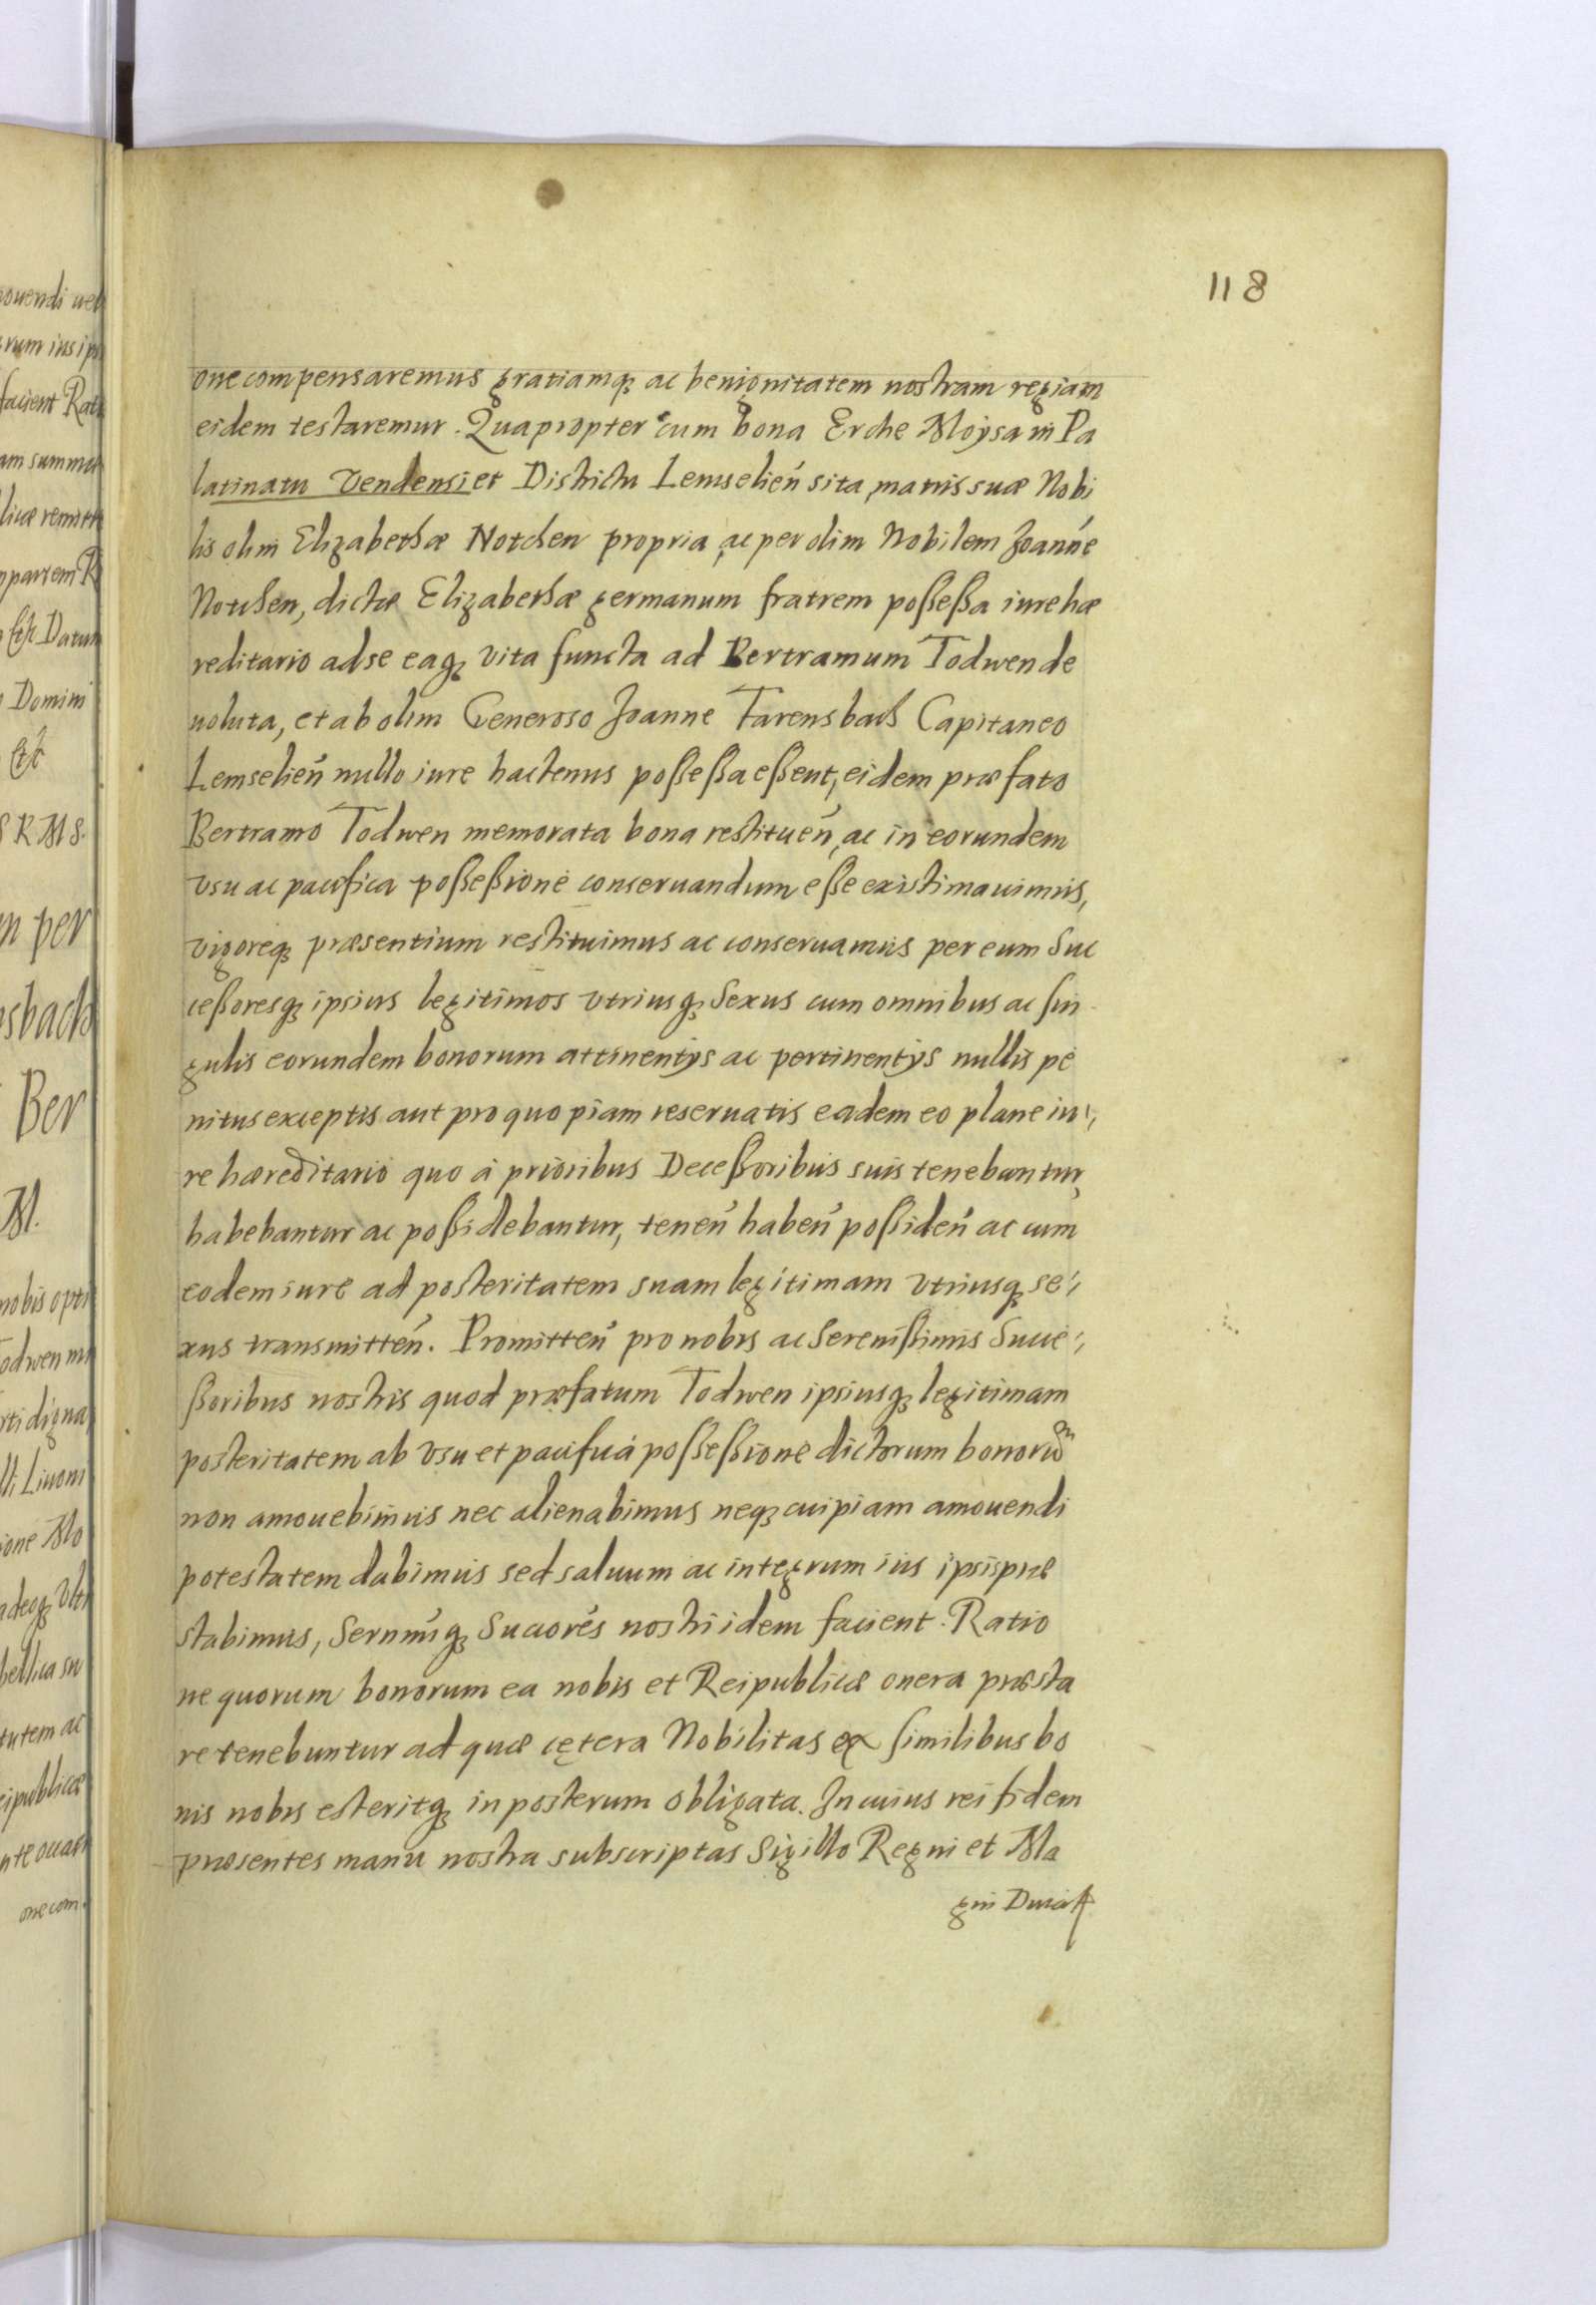 118
one compensaremus gratiamq₃ ac benignitatem nostram regiam
eidem testaremur. Quapropter cum bona Erche Moÿsa in Pa
latinatu Vendensi et Districtu Lemselień sita, matris suæ Nobi
lis olim Elizabethæ Notchen propria, ac per olim Nobilem Joanné
Notchen, dictæ Elizabethæ germanum fratrem poßeßa iure hæ
reditario ad se eaq₃ vita functa ad Bertramum Todwen de
uoluta, et ab olim Generoso Joanne Farensbach Capitaneo
Lemselień nullo iure hactenus poßeßa eßent, eidem præfato
Bertramo Todwen memorata bona restitueń, ac in eorundem
vsu ac pacifica poßeßione conseruandum eße existimauimus,
vigoreq₃ præsentium restituimus ac conseruamus per eum Suc
ceßoresq₃ ipsius legitimos vtriusq₃ Sexus cum omnibus ac sin-
gulis eorundem bonorum attinentÿs ac pertinentÿs nullis pe
nitus exceptis aut pro quo piam reseruatis eadem eo plane iu,
re hæreditario quo à prioribus Deceßoribus suis tenebantur,
habebantur ac poßidebantur, teneń habeń poßideń ac cum
eodem iure ad posteritatem suam legitimam vtriusq₃ se,
xus transmitteń. Promitteń pro nobis ac Sereníßimis Succe,
ßoribus nostris quod præfatum Todwen ipsiusq₃ legitimam
posteritatem ab vsu et pacifica poßeßione dictorum bonorum
non amouebimus nec alienabimus neq₃ cuipiam amouendi
potestatem dabimus sed saluum ac integrum ius ipsis præ
stabimus, Sernmiq₃ Succorés nostri idem facient. Ratio
ne quorum bonorum ea nobis et Reipublicæ onera præsta
re tenebuntur ad quæ cętera Nobilitas ex similibus bo
nis nobis est eritq₃ in posterum obligata. In cuius rei fidem
præsentes manu nostra subscriptas Sigillo Regni et Ma
gni Duca